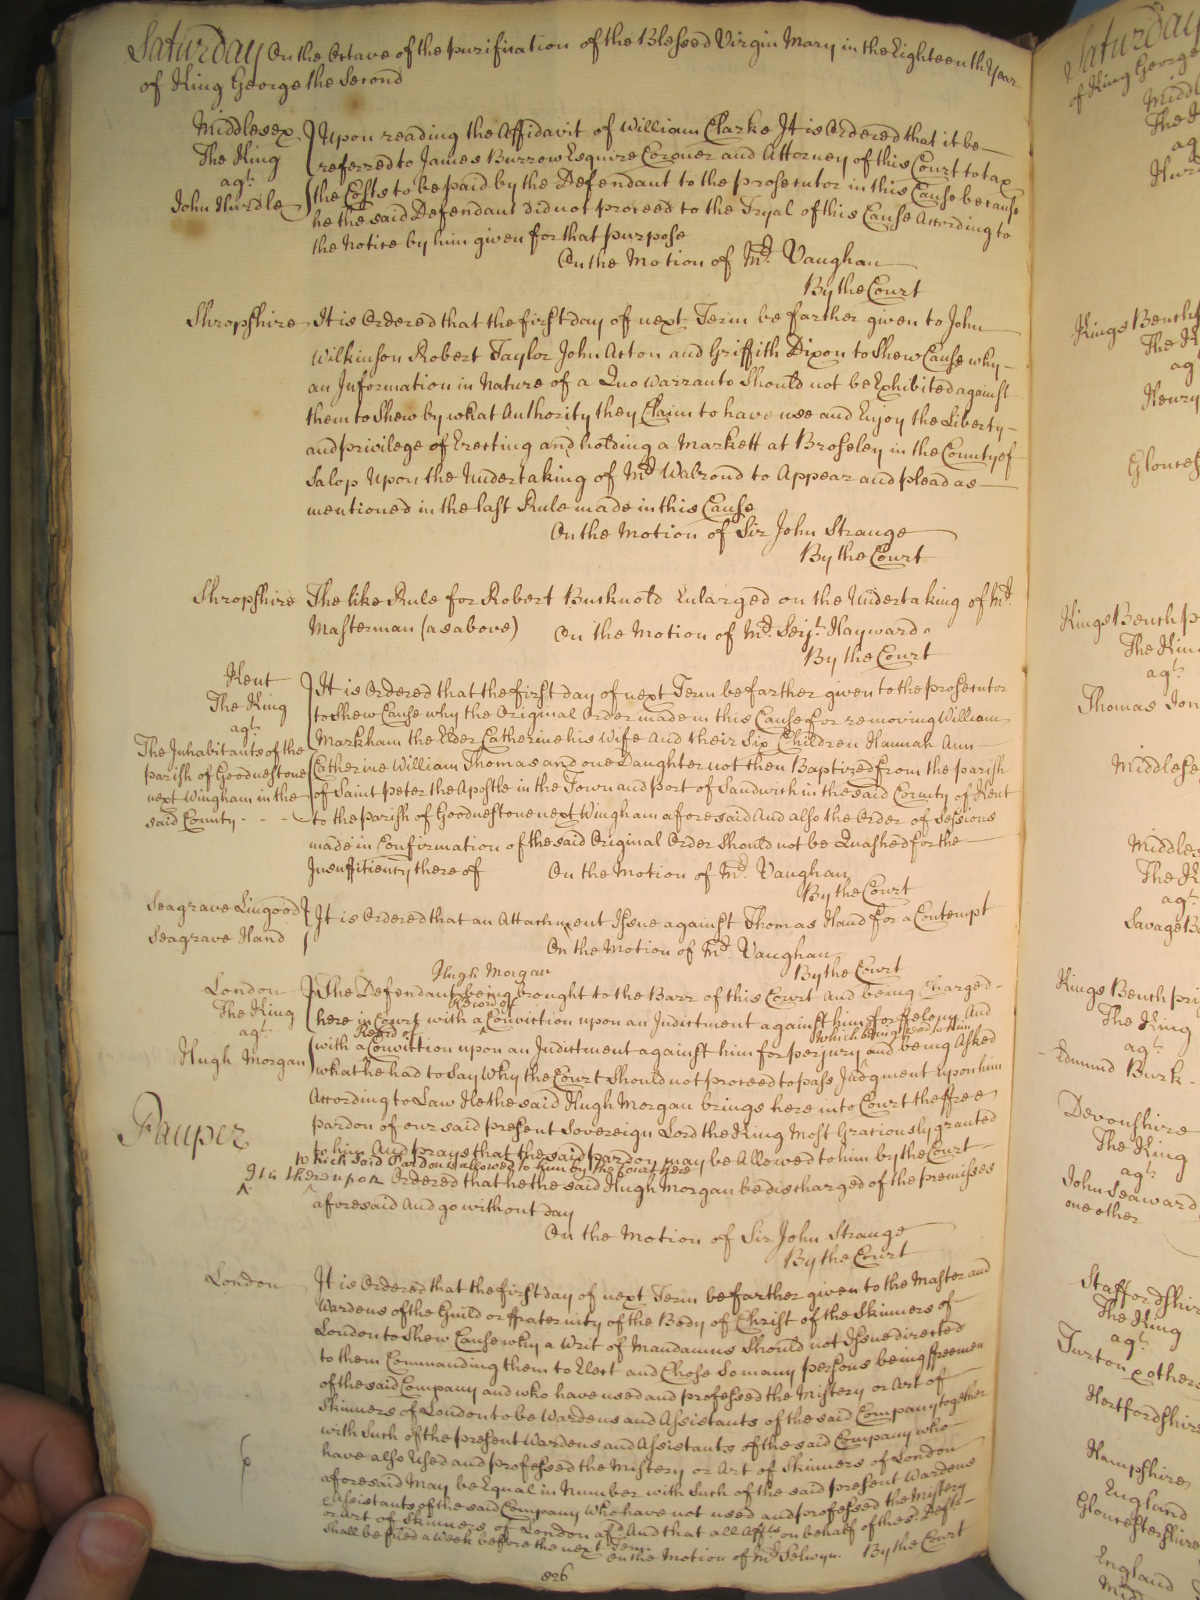 Saturday On the Octave of the purification of the Blessed Virgin Mary in the Eighteenth Year
of King George the Second
Middlesex
The King
agt.
John Hurdle
Upon reading the Affidavit of William Clarke It is Ordered that it be
referred to James Burrow Esquire Coroner and Attorney of this Court to tax
the Costs to be paid by the Defendant to the prosecutor in this Cause because
he the said Defendant did not proceed to the Tryal of this Cause According to
the Notice by him given for that purpose
On the Motion of Mr. Vaughan
By the Court
Shropshire
It is Ordered that the first day of next Term be farther given to John
Wilkinson Robert Taylor John Acton and Griffith Dixon to Shew Cause why
an Information in Nature of a Quo warranto Should not be Exhibited against
them to Shew by what Authority they Claim to have use and Enjoy the Liberty
and privilege of Erecting and holding a Markett at Broseley in the County of
Salop Upon the Undertaking of Mr. Walrond to Appear and plead as
mentioned in the last Rule made in this Cause
On the Motion of Sir John Strange
By the Court
Shropshire
The like Rule for Robert Bucknold Enlarged on the Undertaking of Mr.
Masterman (as above)
On the Motion of Mr. Serjt. Hayward
By the Court
Kent
The King
agt.
The Inhabitants of the
parish of Goodnestone
next Wingham in the
said County
It is Ordered that the first day of next Term be farther given to the prosecutor
to Shew Cause why the Original Order made in this Cause for removing William
Markham the Elder Catherine his Wife And their Six Children Hannah Ann
Catherine William Thomas and one Daughter not then Baptized from the parish
of Saint peter the Apostle in the Town and port of Sandwich in the said County of Kent
to the parish of Goodnestone next Wingham aforesaid And also the Order of Sessions
made in Confirmation of the said Original Order Should not be Quashed for the
Insufficiency thereof
On the Motion of Mr. Vaughan
By the Court
Seagrave Lingood
Seagrave Hand
It is Ordered that an Attachment Issue against Thomas Hand for a Contempt
On the Motion of Mr. Vaughan
By the Court
London
The King
agt.
Hugh Morgan
Pauper
Hugh Morgan
The Defendant being brought to the Barr of this Court And being Charged
Record of
here in Court with a Conviction upon an Indictment against him for ffelony And
Record of which being read to him
with a Conviction upon an Indictment against him for perjury and being Asked
what he had to Say why the Court Should not proceed to pass Judgment upon him
According to Law He the said Hugh Morgan brings here into Court the ffree
pardon of our said present Sovereign Lord the King Most Graciously granted
to him And prays that the said pardon may be Allowed to him by the Court
which said Pardon is allowed to him by the Court here
It is thereupon Ordered that he the said Hugh Morgan be discharged of the premisses
aforesaid And go without day
On the Motion of Sir John Strange
By the Court
London
It is Ordered that the first day of next Term be farther given to the Master and
Wardens of the Guild or ffraternity of the Body of Christ of the Skinners of
London to Shew Cause why a Writ of Mandamus Should not Issue directed
to them Commanding them to Elect and Chose So many persons being ffreemen
of the said Company and who have used and professed the Mistery or Art of
Skinners of London to be Wardens and Assistants of the said Company together
with Such of the present Wardens and Assistants of the said Company who
have also Used and professed the Mistery or Art of Skinners of London
aforesaid May be Equal in Number with Such of the said present Wardens
& Assistants of the said Company who have not used and professed the Mistery
or Art of Skinners of London afd. And that all Affts. on behalf of the sd. Defts.
Shall be filed a Week before the next Term.
On the Motion of Mr. Selwyn.
By the Court
826
Saturday
of King George
Middl
The K
ag
Hur
Kings Bench
The K
ag
Henry
Glouces
Kings Bench p
The Kin
agt.
Thomas Jon
Middlese
Middles
The K
agt.
Savage B
Kings Bench pri
The King
agt.
Edmund Burk
Devonshire
The King
agt.
John Seaward
one other
Staffordshir
The King
agt.
Turton & others
Hertfordshire
Hampshire
England
Gloucestershire
England
Mid